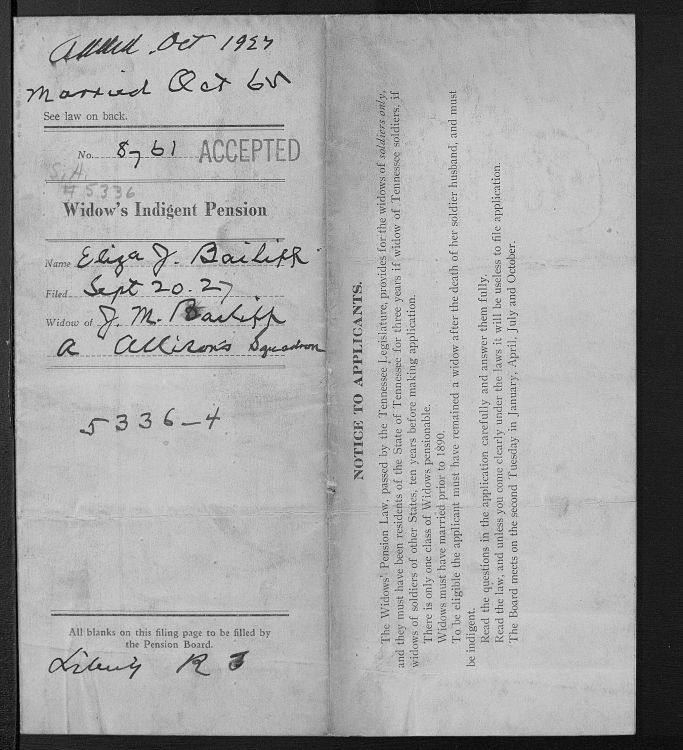 Added Oct 1927
Married Oct 65
See law on back.
No. 8761 ACCEPTED
S.A.
# 5336
Widow's Indigent Pension
Name Eliza J. Bailiff
Filed Sept 20. 27
Widow of J. M. Bailiff
a Allisons Squadron
5336-4
All blanks on this filing page to be filled by
the Pension Board.
Liberty R 3
NOTICE TO APPLICANTS.
The Widows' Pension Law, passed by the Tennessee Legislature, provides for the widows of soldiers only,
and they must have been residents of the State of Tennessee for three years if widow of Tennessee soldiers, if
widows of soldiers of other States, ten years before making application.
There is only one class of Widows pensionable.
Widows must have married prior to 1890.
To be eligible the applicant must have remained a widow after the death of her soldier husband, and must
be indigent.
Read the questions in the application carefully and answer them fully.
Read the law, and unless you come clearly under the laws it will be useless to file application.
The Board meets on the second Tuesday in January, April, July and October.